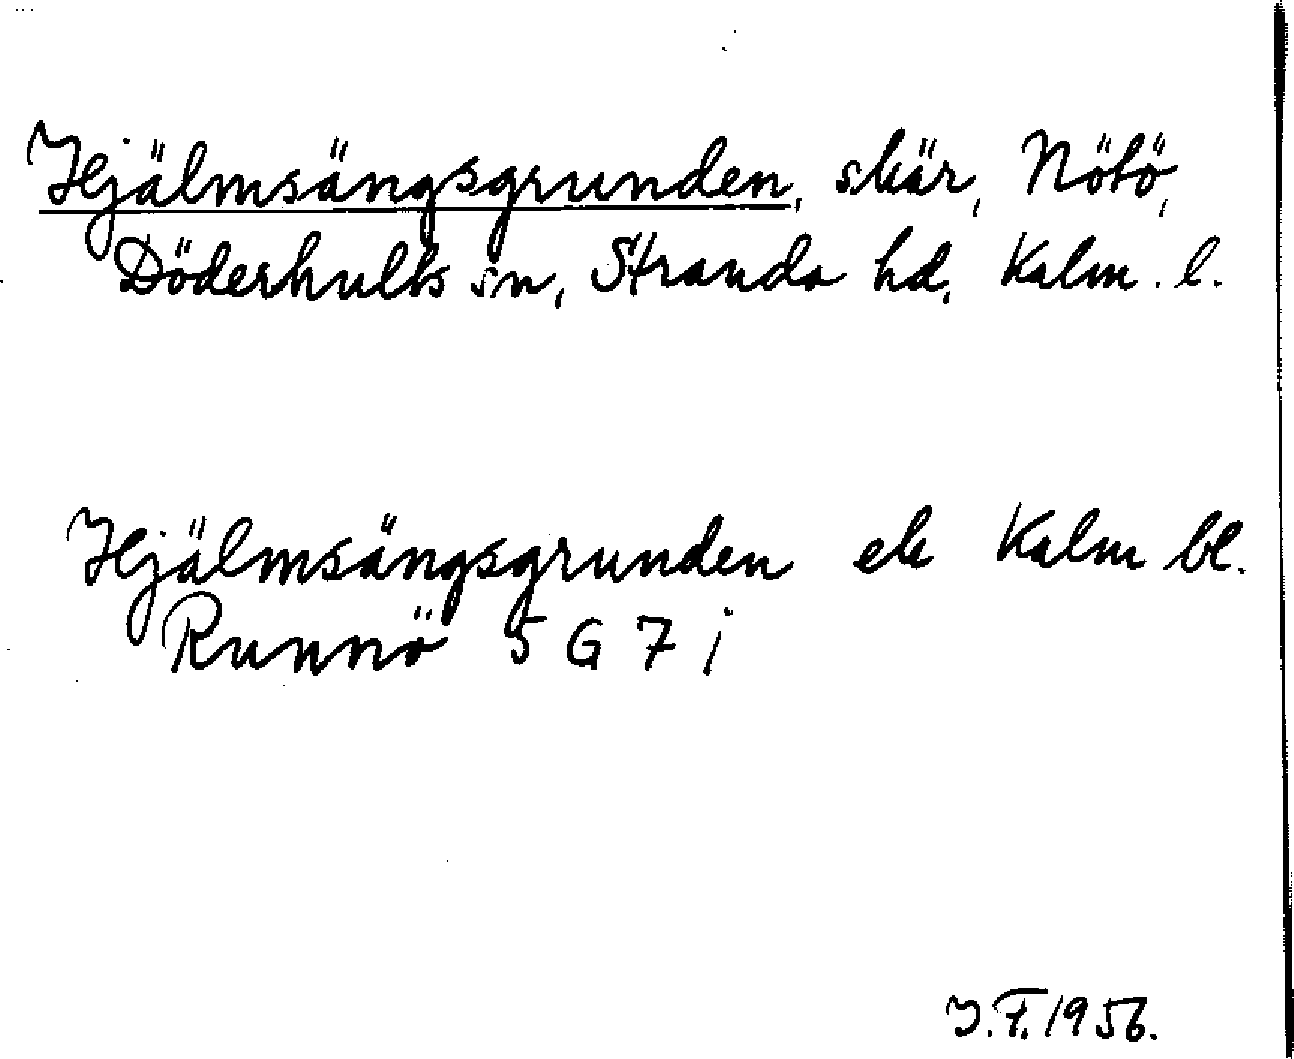 Hjälmsängsgrunden, skär, Nötö,
Döderhults sn, Stranda hd, Kalm. l.
Hjälmsängsgrunden ek Kalm bl.
Runnö 5 G 7 i
J.F. 1956.